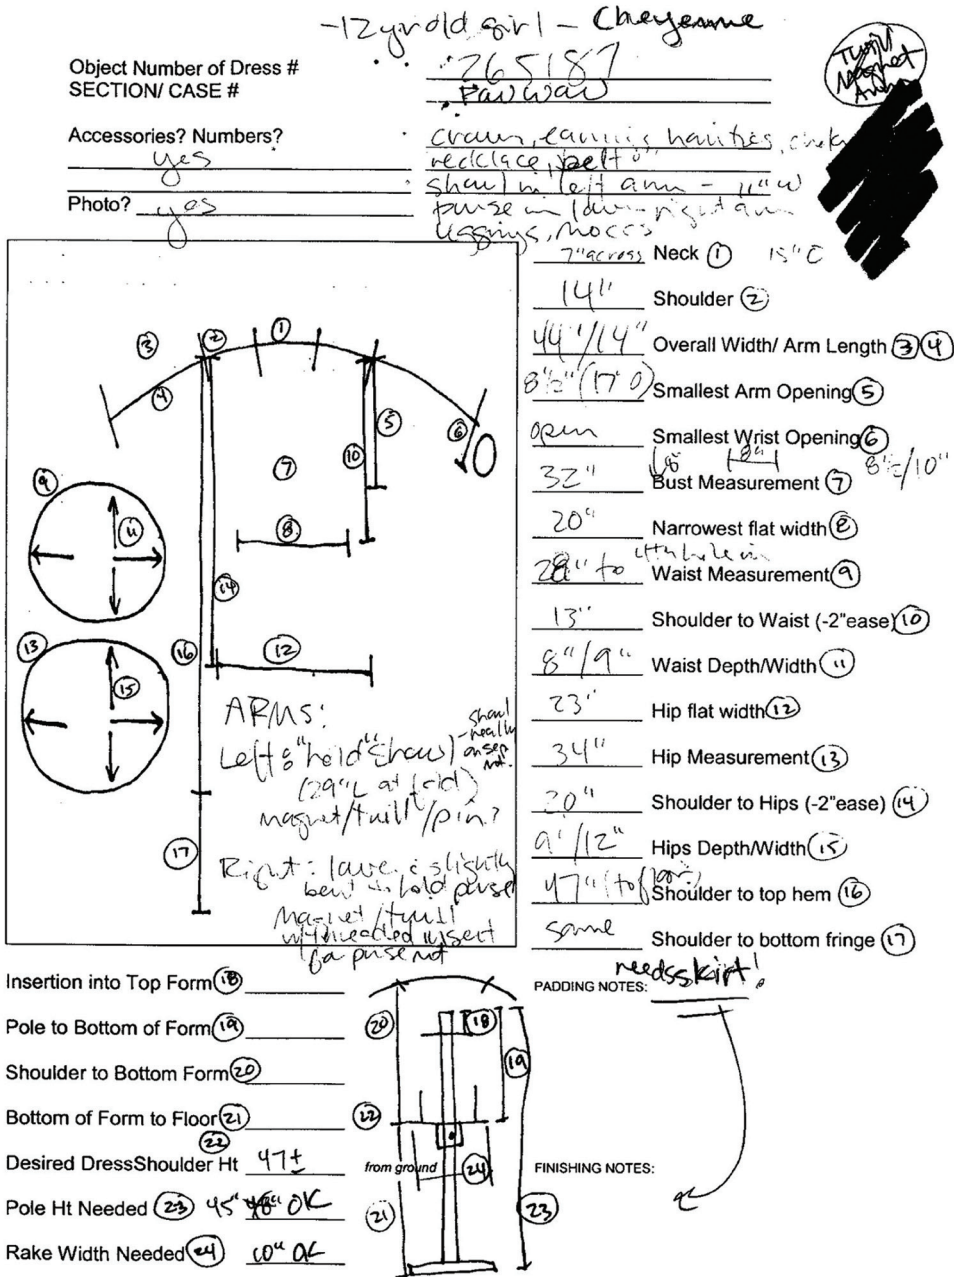 -12 yr old girl - Cheyenne
Object Number of Dress # 265187
SECTION/ CASE # Pawwaw
Twill
Magnet
Arms
Accessories? Numbers? crown, earrings, hairties, choker
yes necklace, belt
shawl in left arm - 11" W
Photo? yes purse in lower right arm
leggings, moccs
7" across Neck ① 15" C
14" Shoulder ②
44"/14" Overall Width/ Arm Length ③ ④
8½" (17" O) Smallest Arm Opening ⑤
open Smallest Wrist Opening ⑥
8" 8½/10"
32" Bust Measurement ⑦
20" Narrowest flat width ⑧
28" to Waist Measurement ⑨
13" Shoulder to Waist (-2"ease) ⑩
8"/9" Waist Depth/Width ⑪
23" Hip flat width ⑫
34" Hip Measurement ⑬
20" Shoulder to Hips (-2"ease) ⑭
9"/12" Hips Depth/Width ⑮
47" (to floor) Shoulder to top hem ⑯
same Shoulder to bottom fringe ⑰
① ② ③ ④ ⑤ ⑥ ⑦ ⑧ ⑨ ⑩ ⑪ ⑫ ⑬ ⑭ ⑮ ⑯ ⑰
ARMS:
Left: "hold" shawl - shawl really on sep mt.
(29"L at fold)
magnet/twill/pin?
Right: lower & slightly
bent to hold purse
Magnet/twill
w/threaded insert
for purse mt
Insertion into Top Form ⑱
Pole to Bottom of Form ⑲
Shoulder to Bottom Form ⑳
Bottom of Form to Floor ㉑
㉒
Desired DressShoulder Ht 47±
from ground
Pole Ht Needed ㉓ 45" 48" OK
Rake Width Needed ㉔ 10" OK
⑱ ⑲ ⑳ ㉑ ㉒ ㉓ ㉔
PADDING NOTES: needs skirt!
FINISHING NOTES: